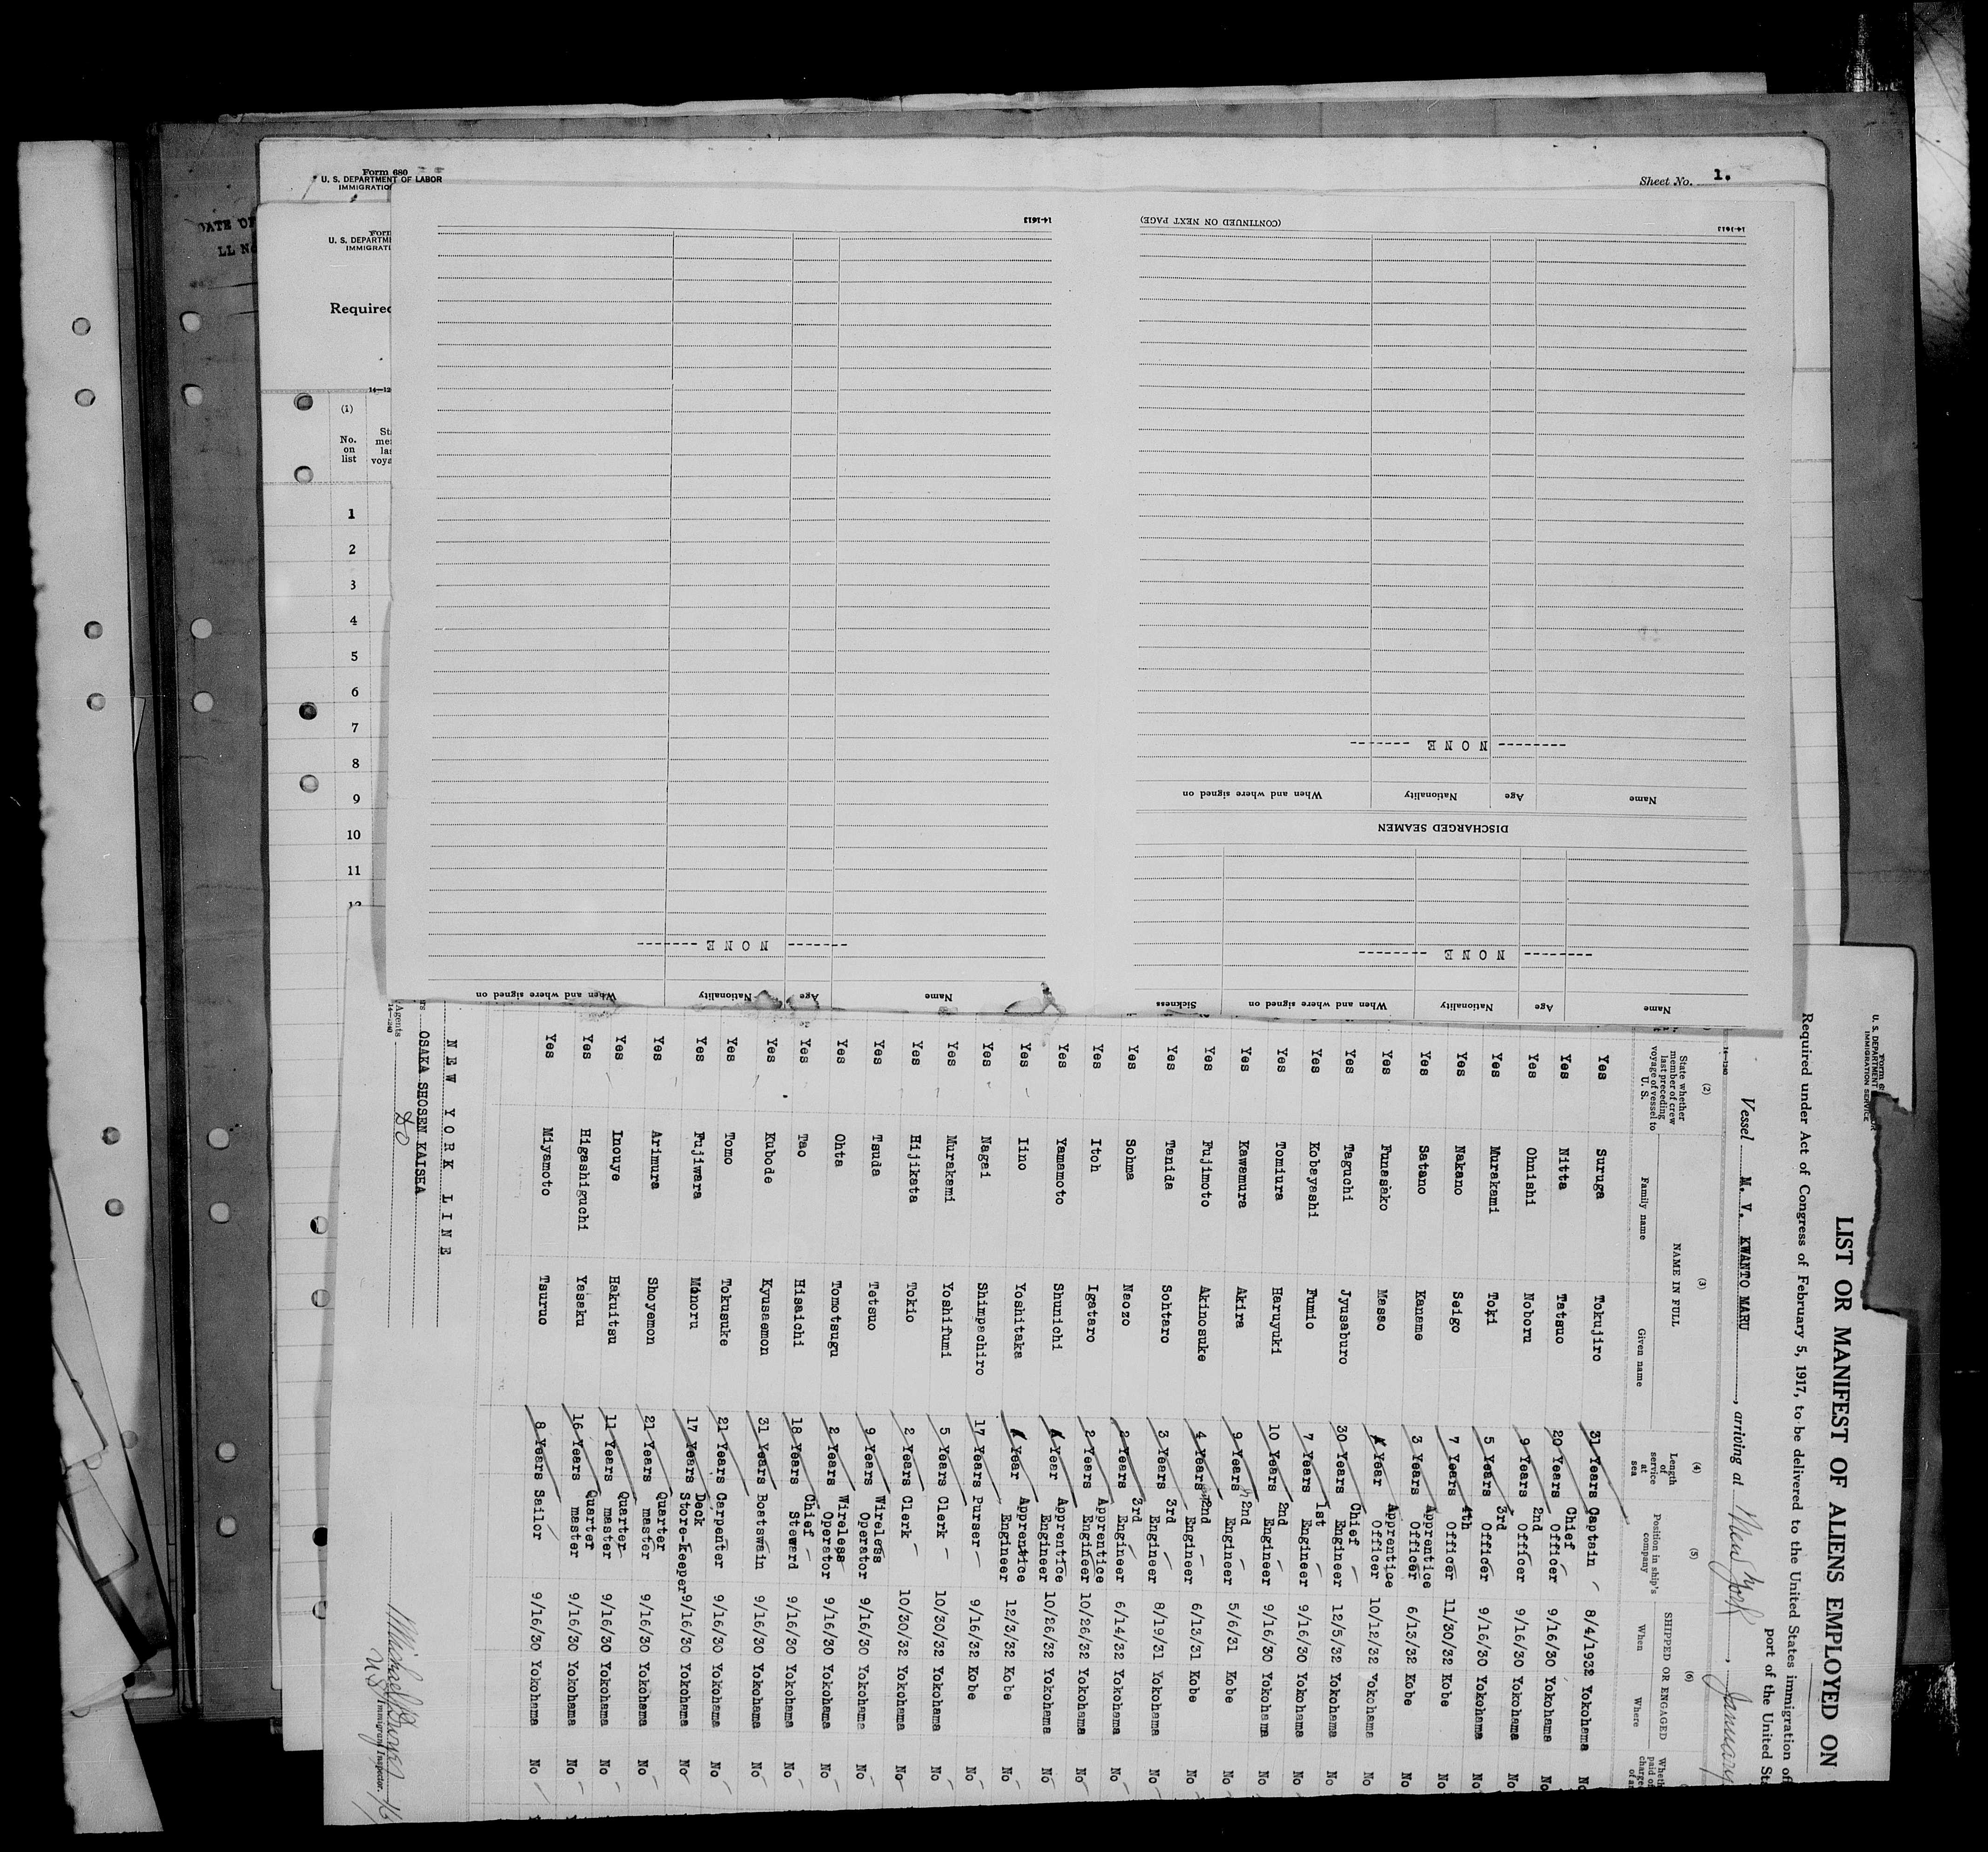 Form 680
U. S. DEPARTMENT OF LABOR
Sheet No. 1.
DATE OF
U. S. DEPARTM
Required
(1)
No.
on
list
1
2
3
4
5
6
7
8
9
10
11
12
14-1613
(CONTINUED ON NEXT PAGE)
14-1613
NONE
Name Age Nationality When and where signed on
DISCHARGED SEAMEN
NONE
Name Age Nationality When and where signed on Sickness
NONE
Name Age Nationality When and where signed on
U. S. DEPARTMENT
IMMIGRATION SERVICE
LIST OR MANIFEST OF ALIENS EMPLOYED ON
Required under Act of Congress of February 5, 1917, to be delivered to the United States immigration of
port of the United St
Vessel M. V. KWANTO MARU, arriving at New York, January
14-1240
(2) (3) (4) (5) (6)
State whether member of crew last preceding voyage of vessel to U. S.
NAME IN FULL
Family name Given name
Length of service at sea
Position in ship's company
SHIPPED OR ENGAGED
When Where
Yes Suruga Tokujiro 31 Years Captain 8/4/1932 Yokohama No
Yes Nitta Tatsuo 20 Years Chief Officer 9/16/30 Yokohama No
Yes Ohnishi Noboru 9 Years 2nd Officer 9/16/30 Yokohama No
Yes Murakami Toki 5 Years 3rd Officer 9/16/30 Yokohama No
Yes Nakano Seigo 7 Years 4th Officer 11/30/32 Kobe No
Yes Satano Kaname 3 Years Apprentice Officer 6/13/32 Kobe No
Yes Funasako Masao Year Apprentice Officer 10/12/32 Yokohama No
Yes Taguchi Jyusaburo 30 Years Chief Engineer 12/5/32 Yokohama No
Yes Kobayashi Fumio 7 Years 1st Engineer 9/16/30 Yokohama No
Yes Tomiura Haruyuki 10 Years 2nd Engineer 9/16/30 Yokohama No
Yes Kawamura Akira 9 Years 2nd Engineer 5/6/31 Kobe No
Yes Fujimoto Akinosuke 4 Years 2nd Engineer 6/13/31 Kobe No
Yes Tanida Sohtaro 3 Years 3rd Engineer 8/19/31 Yokohama No
Yes Sohma Naozo 2 Years 3rd Engineer 6/14/32 Yokohama No
Yes Itoh Igataro 2 Years Apprentice Engineer 10/26/32 Yokohama No
Yes Yamamoto Shunichi Year Apprentice Engineer 10/26/32 Yokohama No
Yes Iino Yoshitaka Year Apprentice Engineer 12/3/32 Kobe No
Yes Nagai Shimpachiro 17 Years Purser 9/16/32 Kobe No
Yes Murakami Yoshifumi 5 Years Clerk 10/30/32 Yokohama No
Yes Hijikata Tokio 2 Years Clerk 10/30/32 Yokohama No
Yes Tsuda Tetsuo 9 Years Wireless Operator 9/16/30 Yokohama No
Yes Ohta Tomotsugu 2 Years Wireless Operator 9/16/30 Yokohama No
Yes Tao Hisaichi 18 Years Chief Steward 9/16/30 Yokohama No
Yes Kubode Kyusaemon 31 Years Boatswain 9/16/30 Yokohama No
Yes Tomo Tokusuke 21 Years Carpenter 9/16/30 Yokohama No
Yes Fujiwara Minoru 17 Years Deck Store-keeper 9/16/30 Yokohama No
Yes Arimura Shoyemon 21 Years Quarter master 9/16/30 Yokohama No
Yes Inouye Hakuitsu 11 Years Quarter master 9/16/30 Yokohama No
Yes Higashiguchi Yasaku 16 Years Quarter master 9/16/30 Yokohama No
Yes Miyamoto Tsuruo 8 Years Sailor 9/16/30 Yokohama No
NEW YORK LINE
OSAKA SHOSEN KAISHA
Agents do
14-1240
Immigrant Inspector.